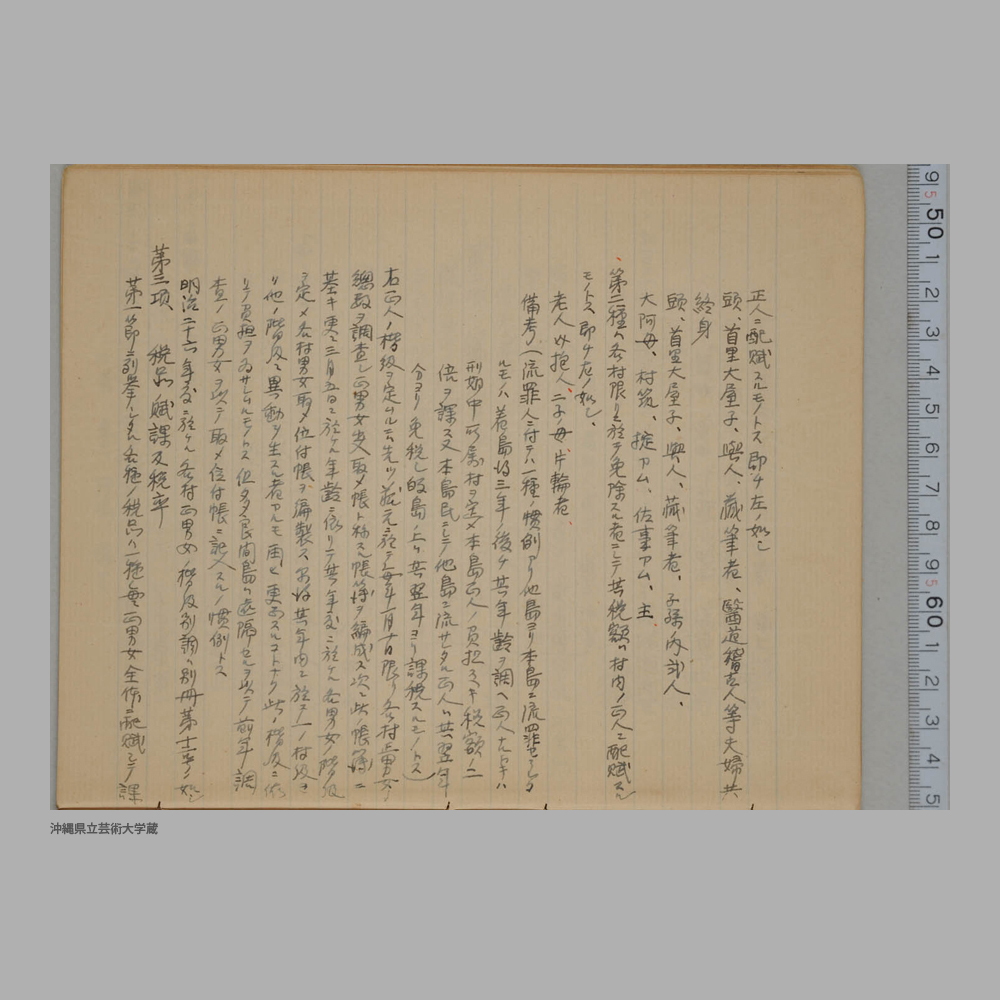 正人ニ配賦スルモノトス即チ左ノ如シ
頭、首里大屋子、與人、蔵筆者、醫道稽古人等夫婦共
終身
頭、首里大屋子、與人、蔵筆者、子孫内弐人、
大阿母、村筑、掟アム、佐事アム、主
第二種ハ各村限リ於テ免除スル者ニシテ其税額ハ村内ノ正人ニ配賦スル
モノトス即チ左ノ如シ、
老人以抱人、二子ノ母、片輪者、
備考（流罪人ニ付テハ一種ノ慣例アリ他島ヨリ本島ニ流罪セシタ
ルモノハ着島後三年ノ後チ其年齢ヲ調ヘ正人ナルトキハ
刑期中所属村ヲ定メ本島正人ノ負担スヘキ税額ノ二
倍ヲ課ス又本島民ニシテ他島ニ流サレタル正人ハ其翌年
分ヨリ免税シ帰島ノ上ハ其翌年ヨリ課税スルモノトス）
右正人ノ階級ヲ定ムルニハ先ツ蔵元ニ於テ毎年一月十日限リ各村上男女
総数ヲ調査シ正男女頭取〆帳ト称スル帳簿ヲ編成ス次ニ此ノ帳簿ニ
基キ更ニ三月五日ニ於ケル年齢ニ依リテ其年度ニ於ケル各男女ノ階級
ヲ定メ各村男女取〆位付帳ヲ編製ス 其年内ニ於テ一ノ村級ヨ
リ他ノ階級ニ異動ヲ生スル者アルモ 更正スルコトナク此ノ階級ニ依
リテ負担ヲ為サシムルモノトス 但多良間島ハ遠隔セルヲ以テ前年調
査ノ正男女ヲ以テ取〆位付帳ニ記入スル慣例トス
明治二十六年度ニ於ケル各村正男女階級別調ハ別冊第十二号ノ如シ
第三項 税品、賦課及税率
第一節ニ列挙シタル各種ノ税品ハ一種毎ニ正男女全体ニ配賦シテ課
9 50 1 2 3 4 5 6 7 8 9 60 1 2 3 4 5
沖縄県立芸術大学蔵